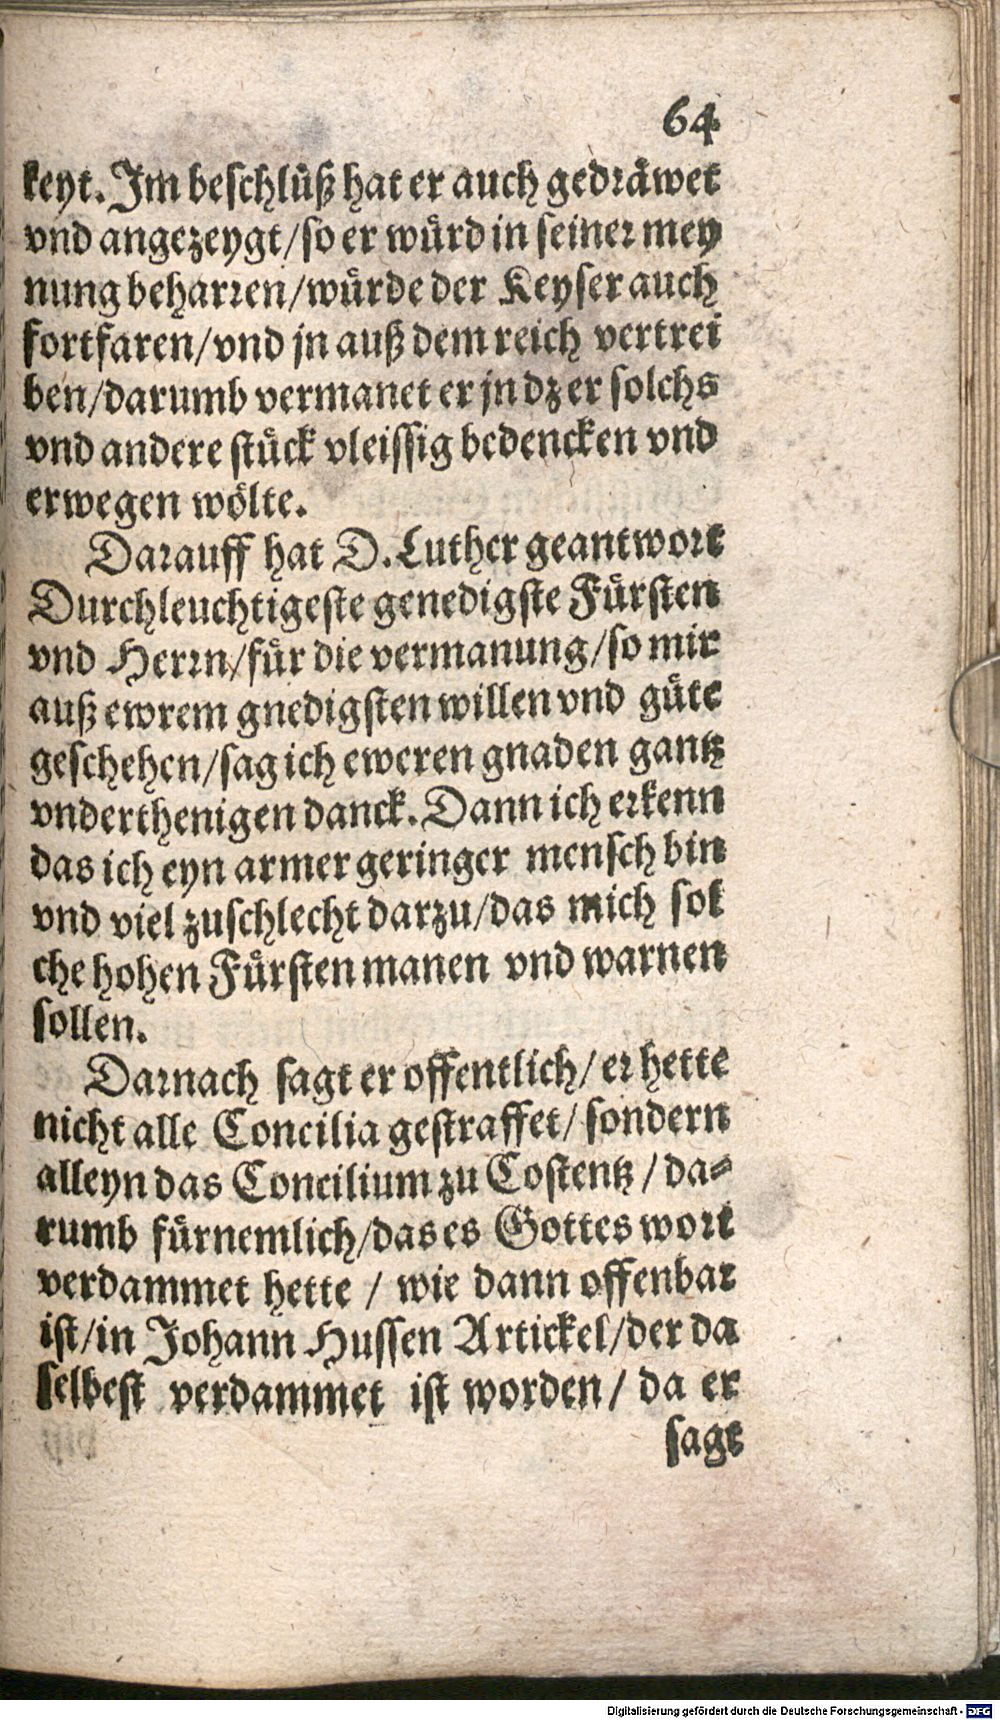 64
keyt. Im beschlůß hat er auch gedräwet
vnd angezeygt/so er würd in seiner mey
nung beharren/würde der Keyser auch
fortfaren/vnd jn auß dem reich vertrei
ben/darumb vermanet er jn dz er solchs
vnd andere stück vleissig bedencken vnd
erwegen wölte.
Darauff hat D. Luther geantwort
Durchleuchtigeste genedigste Fürsten
vnd Herrn/für die vermanung/so mir
auß ewrem gnedigsten willen vnd güte
geschehen/sag ich eweren gnaden gantz
vnderthenigen danck. Dann ich erkenn
das ich eyn armer geringer mensch bin
vnd viel zuschlecht darzu/das mich sol
che hohen Fürsten manen vnd warnen
sollen.
Darnach sagt er offentlich/er hette
nicht alle Concilia gestraffet/sondern
alleyn das Concilium zu Costentz/da-
rumb fürnemlich/das es Gottes wort
verdammet hette/wie dann offenbar
ist/in Johann Hussen Artickel/der da
selbest verdammet ist worden/da er
sagt
Digitalisierung gefördert durch die Deutsche Forschungsgemeinschaft - DFG